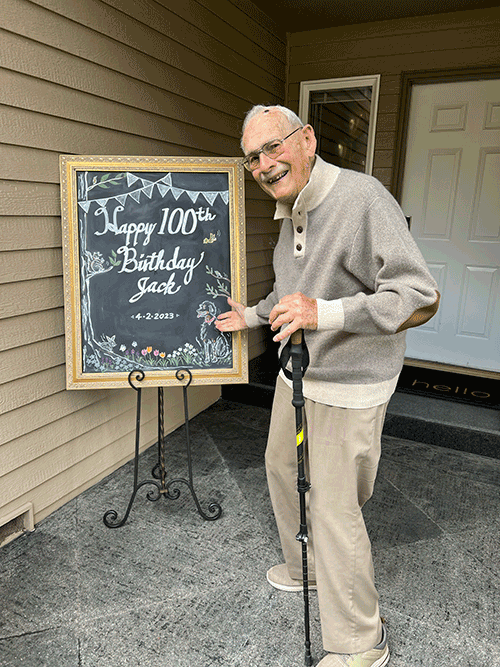 Happy 100th
Birthday
Jack
•4•2•2023•
hello